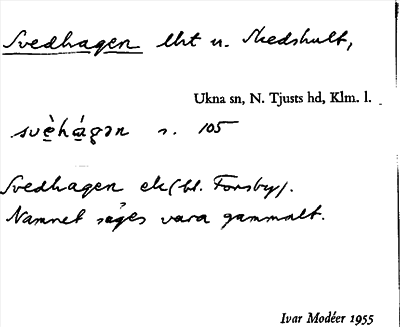 Svedhagen lht u. Skedshult,
Ukna sn, N. Tjusts hd, Klm. l.
svèhágən s. 105
Svedhagen ek (bl. Forsby).
Namnet säges vara gammalt.
Ivar Modéer 1955